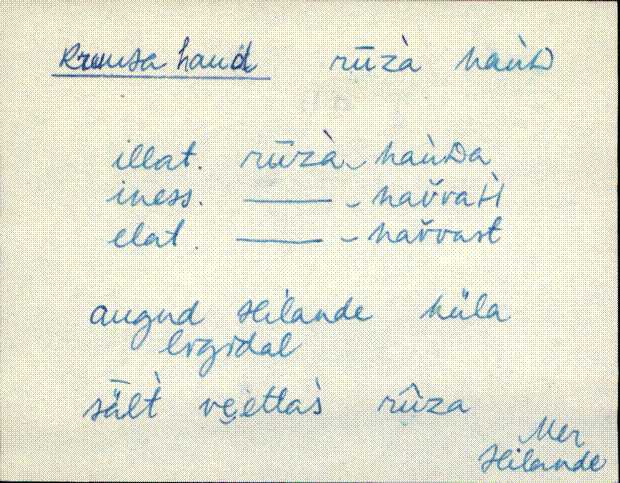 Kruusa haud rūzà haùᴅ
illat. rūzà- haùᴅa
iness. ——— - haŭvaH
elat. ——— - haŭvast
augud Hilande küla
ligidal
sält̀ vẹettas̀ rûza
Mer
Hilande